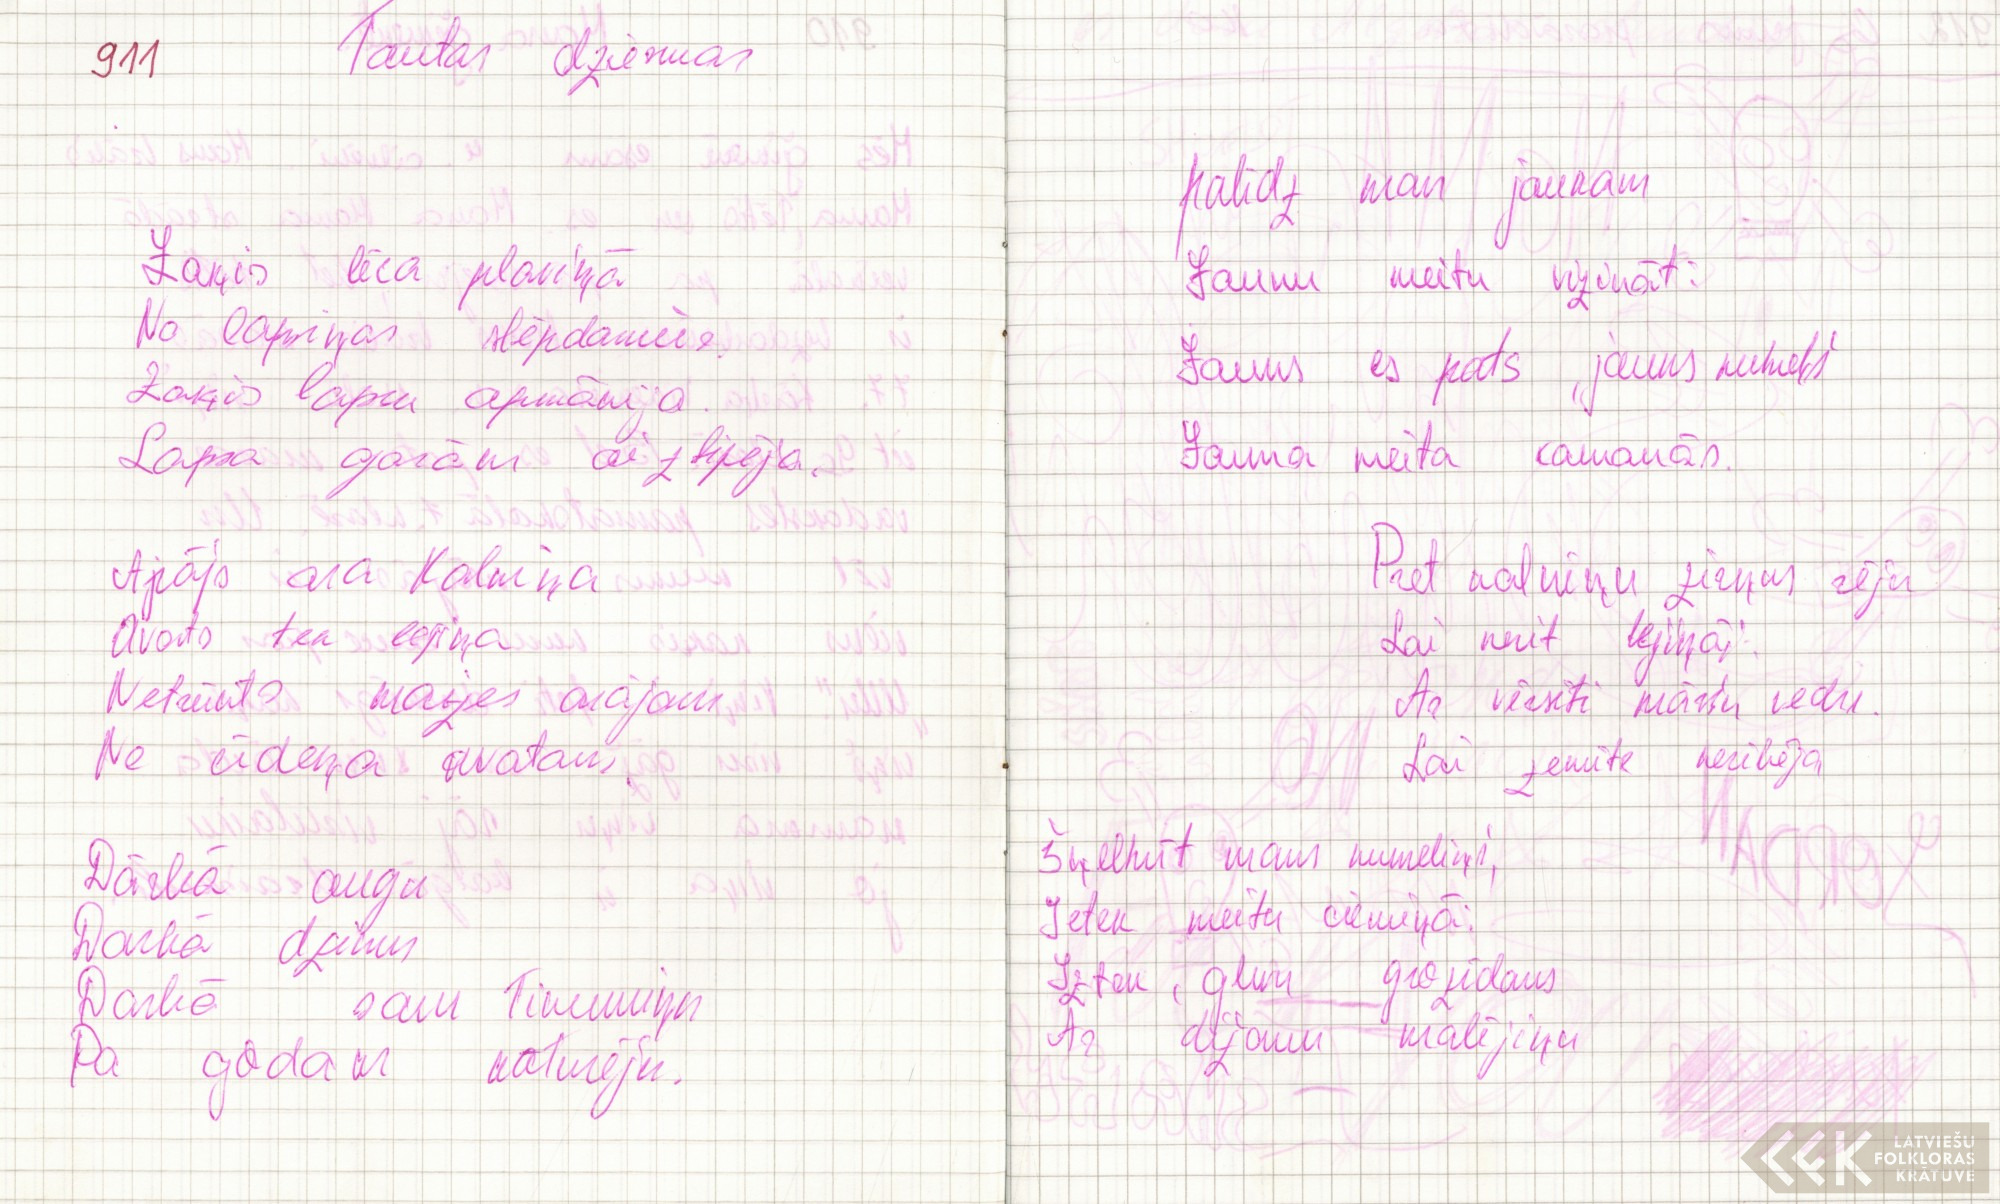 911
Tautas dziesmas
Zaķis līca pļaviņā
No lapsiņas slēpdamies.
Zaķis lapsu apmānīja.
Lapsa garām aiztipēja.
Apājs ara Kalniņa
Avots tek lejiņa
Netrūkts maizes arājam
Ne ūdeņa avotam.
Dārkā augu
Darkā dzimu
Darkā sam
Pa godam
palīdz man jaunam
Jaunu meitu vizināt:
Jauns es pats, jauns kumeļš
Jauna meita kamanās.
Pret kalniņu zirņus sēju
Lai nerit lejiņāj:
Ar vērsīti mārtu vedu.
Lai zemīte neribēja
Šņelkūt mans kumeliņš,
Ietek meitu ciemiņā:
Iztek, gluu grozīdams
Ar dižanu malējiņu
LATVIEŠU
FOLKLORAS
KRĀTUVE